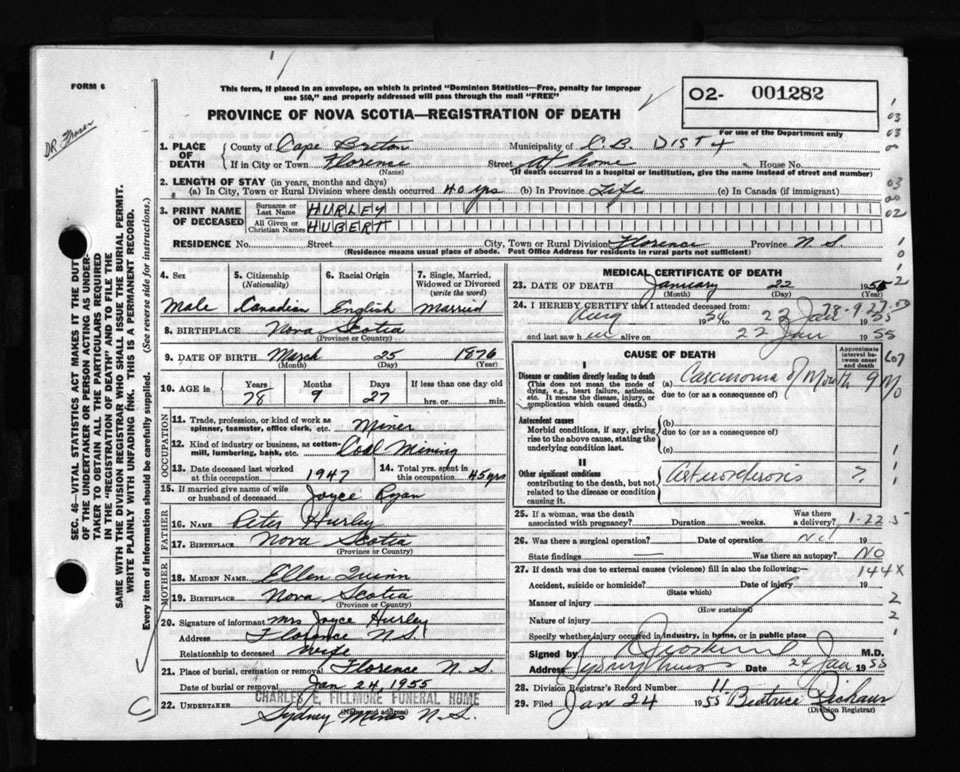 FORM 6
This form, if placed in an envelope, on which is printed "Dominion Statistics—Free, penalty for improper
use $50," and properly addressed will pass through the mail "FREE"
02- 001282
For use of the Department only
PROVINCE OF NOVA SCOTIA—REGISTRATION OF DEATH
DR. Fraser
1. PLACE OF DEATH County of Cape Breton Municipality of C.B. DIST 4
If in City or Town Florence Street At home House No.
(Name) (If death occurred in a hospital or institution, give the name instead of street and number)
2. LENGTH OF STAY (in years, months and days)
(a) In City, Town or Rural Division where death occurred 40 yrs (b) In Province Life (c) In Canada (if immigrant)
3. PRINT NAME OF DECEASED Surname or Last Name HURLEY
All Given or Christian Names HUBERT
RESIDENCE No. Street City, Town or Rural Division Florence Province N.S.
(Residence means usual place of abode. Post Office Address for residents in rural parts not sufficient)
4. Sex Male
5. Citizenship (Nationality) Canadian
6. Racial Origin English
7. Single, Married, Widowed or Divorced (write the word) Married
8. BIRTHPLACE Nova Scotia
(Province or Country)
9. DATE OF BIRTH March 25 1876
(Month) (Day) (Year)
10. AGE in Years 78 Months 9 Days 27 If less than one day old hrs. or min.
OCCUPATION
11. Trade, profession or kind of work as spinner, teamster, office clerk, etc. Miner
12. Kind of industry or business, as cotton-mill, lumbering, bank, etc. Coal Mining
13. Date deceased last worked at this occupation 1947
14. Total yrs. spent in this occupation 45 yrs
15. If married give name of wife or husband of deceased Joyce Ryan
FATHER
16. NAME Peter Hurley
17. BIRTHPLACE Nova Scotia
(Province or Country)
MOTHER
18. MAIDEN NAME Ellen Quinn
19. BIRTHPLACE Nova Scotia
(Province or Country)
20. Signature of informant Mrs Joyce Hurley
Address Florence N.S.
Relationship to deceased Wife
21. Place of burial, cremation or removal Florence N.S.
Date of burial or removal Jan 24, 1955
22. UNDERTAKER CHARLES E. FILLMORE FUNERAL HOME
(Name and address)
Sydney Mines N.S.
MEDICAL CERTIFICATE OF DEATH
23. DATE OF DEATH January 22 1955
(Month) (Day) (Year)
24. I HEREBY CERTIFY that I attended deceased from:
Aug 1954 to 22 Jan 1955
and last saw h im alive on 22 Jan 1955
CAUSE OF DEATH
Approximate interval between onset and death
I
Disease or condition directly leading to death (a) Carcinoma of Mouth 9 Mo
(This does not mean the mode of dying, e.g., heart failure, asthenia, etc. It means the disease, injury, or complication which caused death.) due to (or as a consequence of)
Antecedent causes
Morbid conditions, if any, giving rise to the above cause, stating the underlying condition last.
(b)
due to (or as a consequence of)
(c)
II
Other significant conditions contributing to the death, but not related to the disease or condition causing it. ?
25. If a woman, was the death associated with pregnancy? Duration weeks. Was there a delivery? 1-22
26. Was there a surgical operation? Date of operation Nil 19
State findings Was there an autopsy? No
27. If death was due to external causes (violence) fill in also the following:— 144X
Accident, suicide or homicide? Date of injury 19
(State which)
Manner of injury
(How sustained)
Nature of injury
Specify whether injury occurred in industry, in home, or in public place
Signed by M.D.
Address Sydney Mines Date 24 Jan 1955
28. Division Registrar's Record Number 11
29. Filed Jan 24 1955 Beatrice
(Division Registrar)
SEC. 46—VITAL STATISTICS ACT MAKES IT THE DUTY
OF THE UNDERTAKER OR PERSON ACTING AS UNDER-
TAKER TO OBTAIN ALL THE PARTICULARS REQUIRED
IN THE "REGISTRATION OF DEATH" AND TO FILE THE
SAME WITH THE DIVISION REGISTRAR WHO SHALL ISSUE THE BURIAL PERMIT.
WRITE PLAINLY WITH UNFADING INK. THIS IS A PERMANENT RECORD.
Every item of information should be carefully supplied. (See reverse side for instructions.)